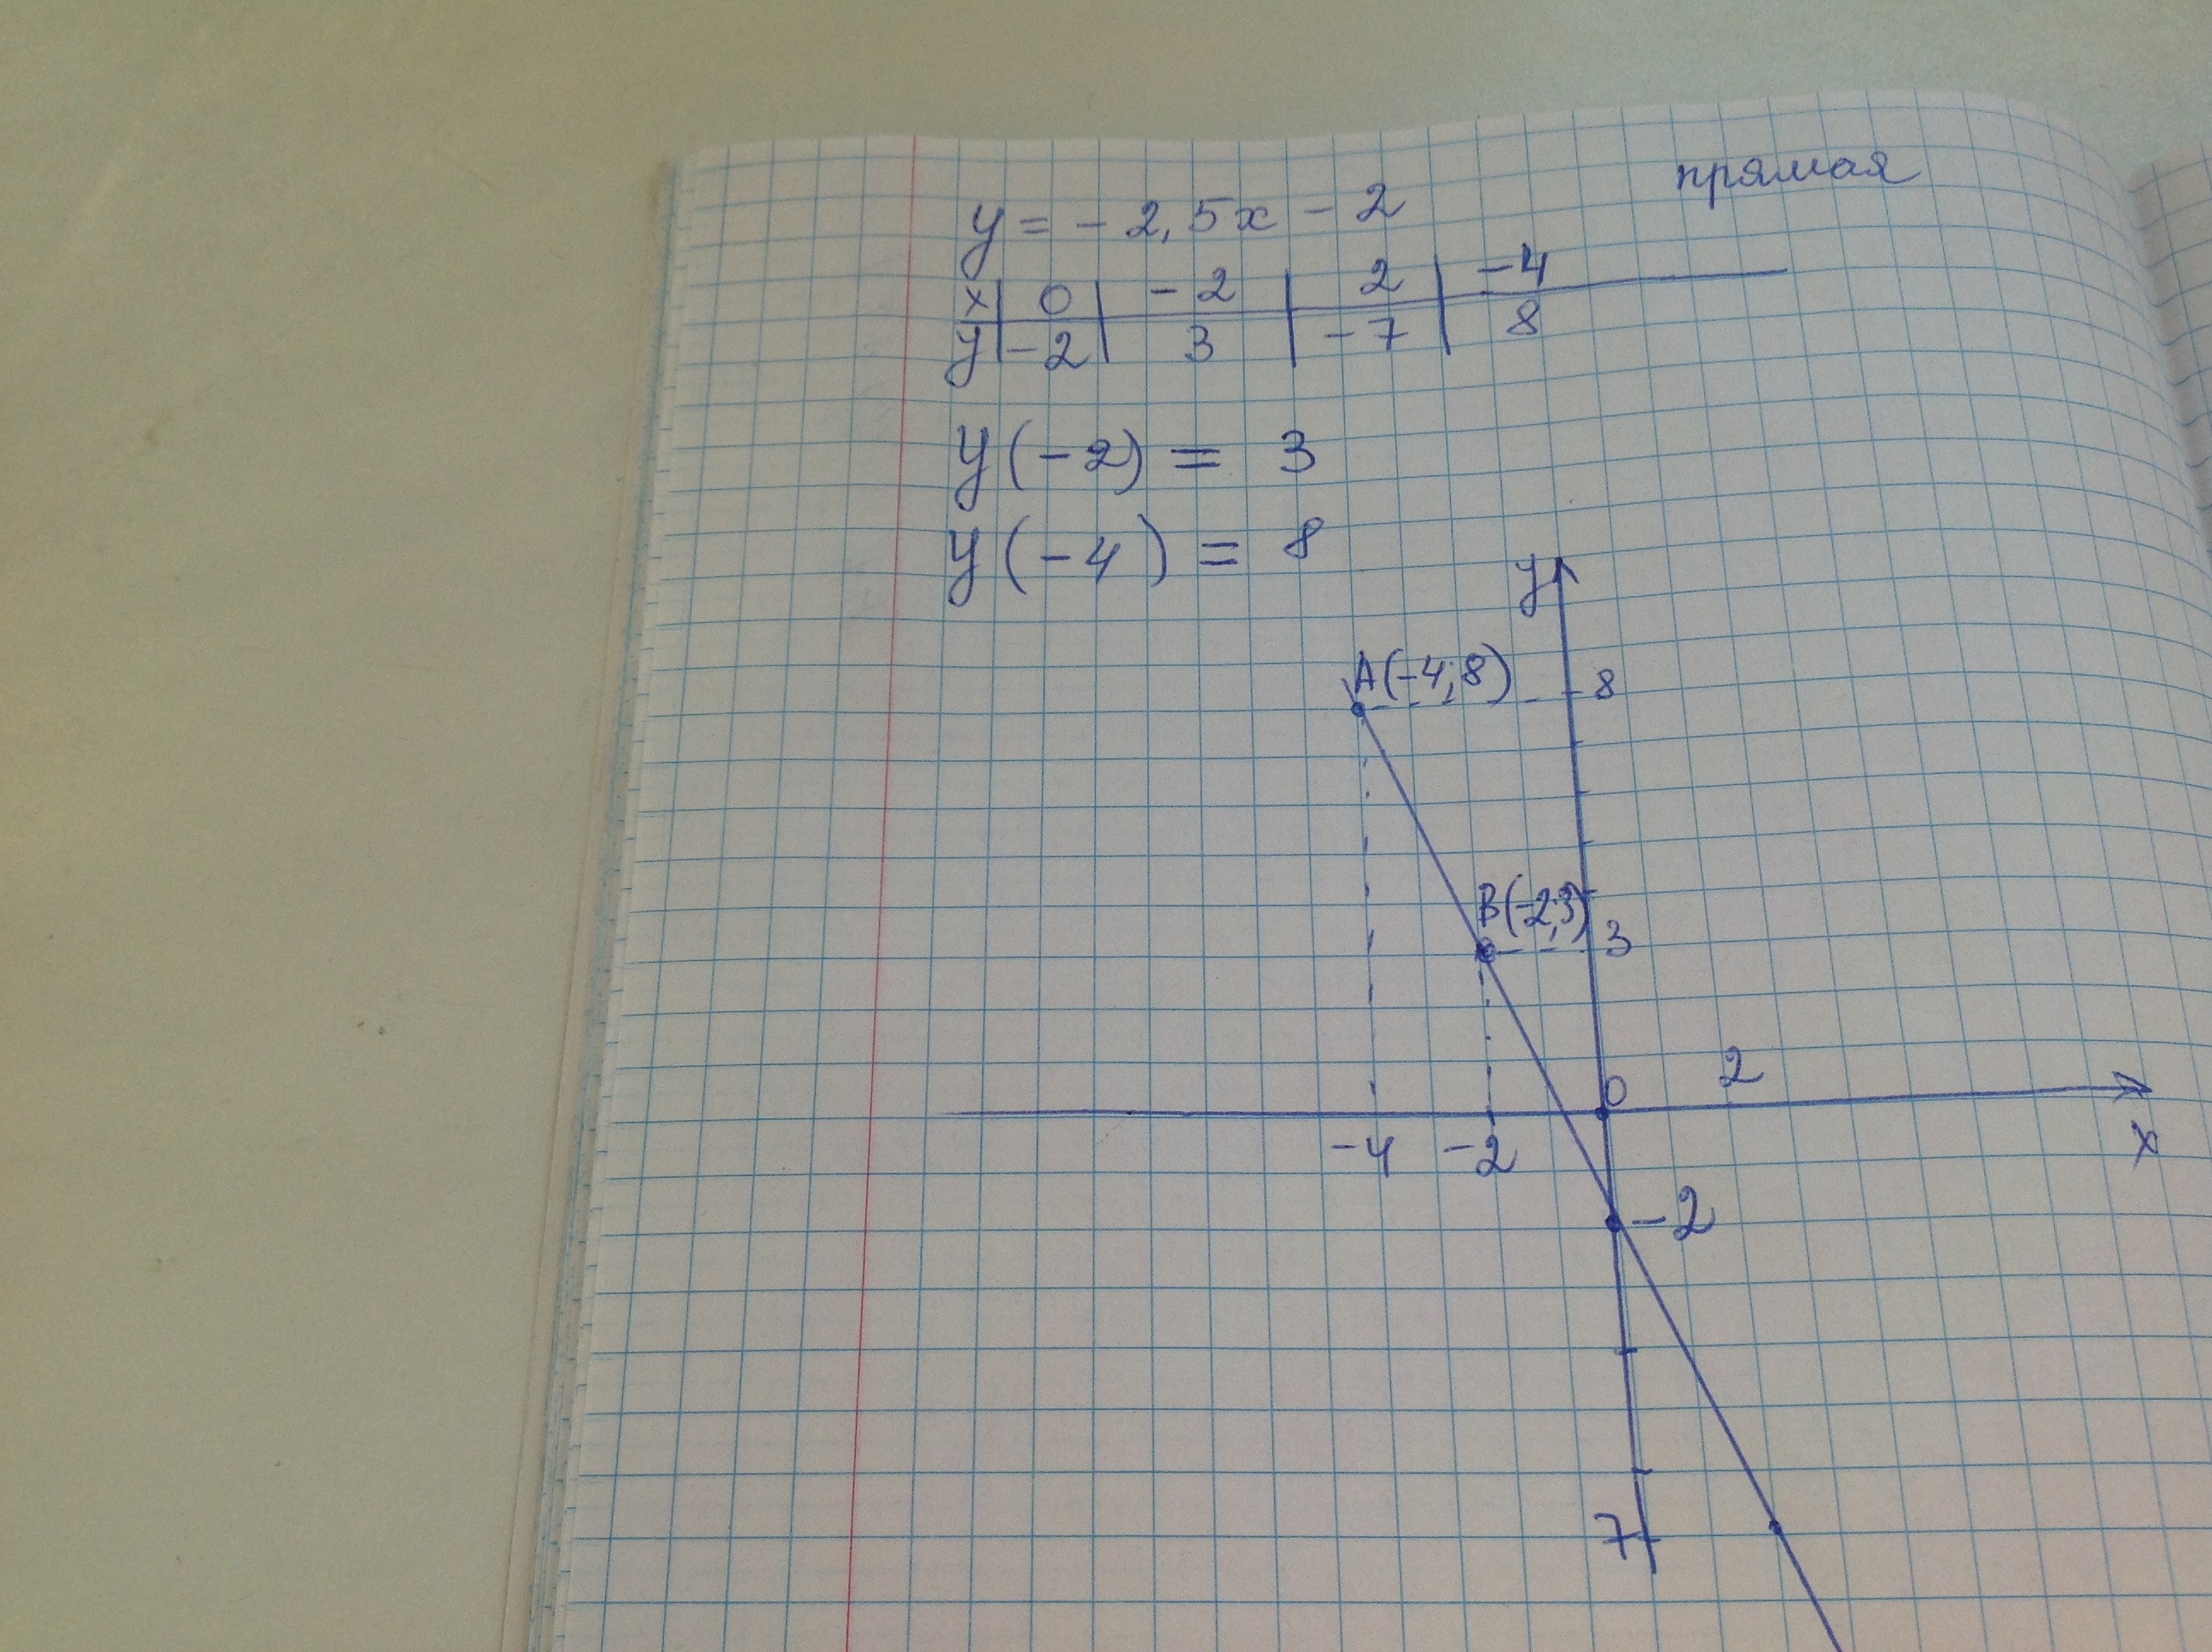 прямая
y = - 2,5x - 2
x | 0 | - 2 | 2 | - 4
y | - 2 | 3 | - 7 | 8
y(-2) = 3
y(-4) = 8
y
A(-4;8) 8
B(-2;3) 3
0 2
x
-4 -2
-2
7